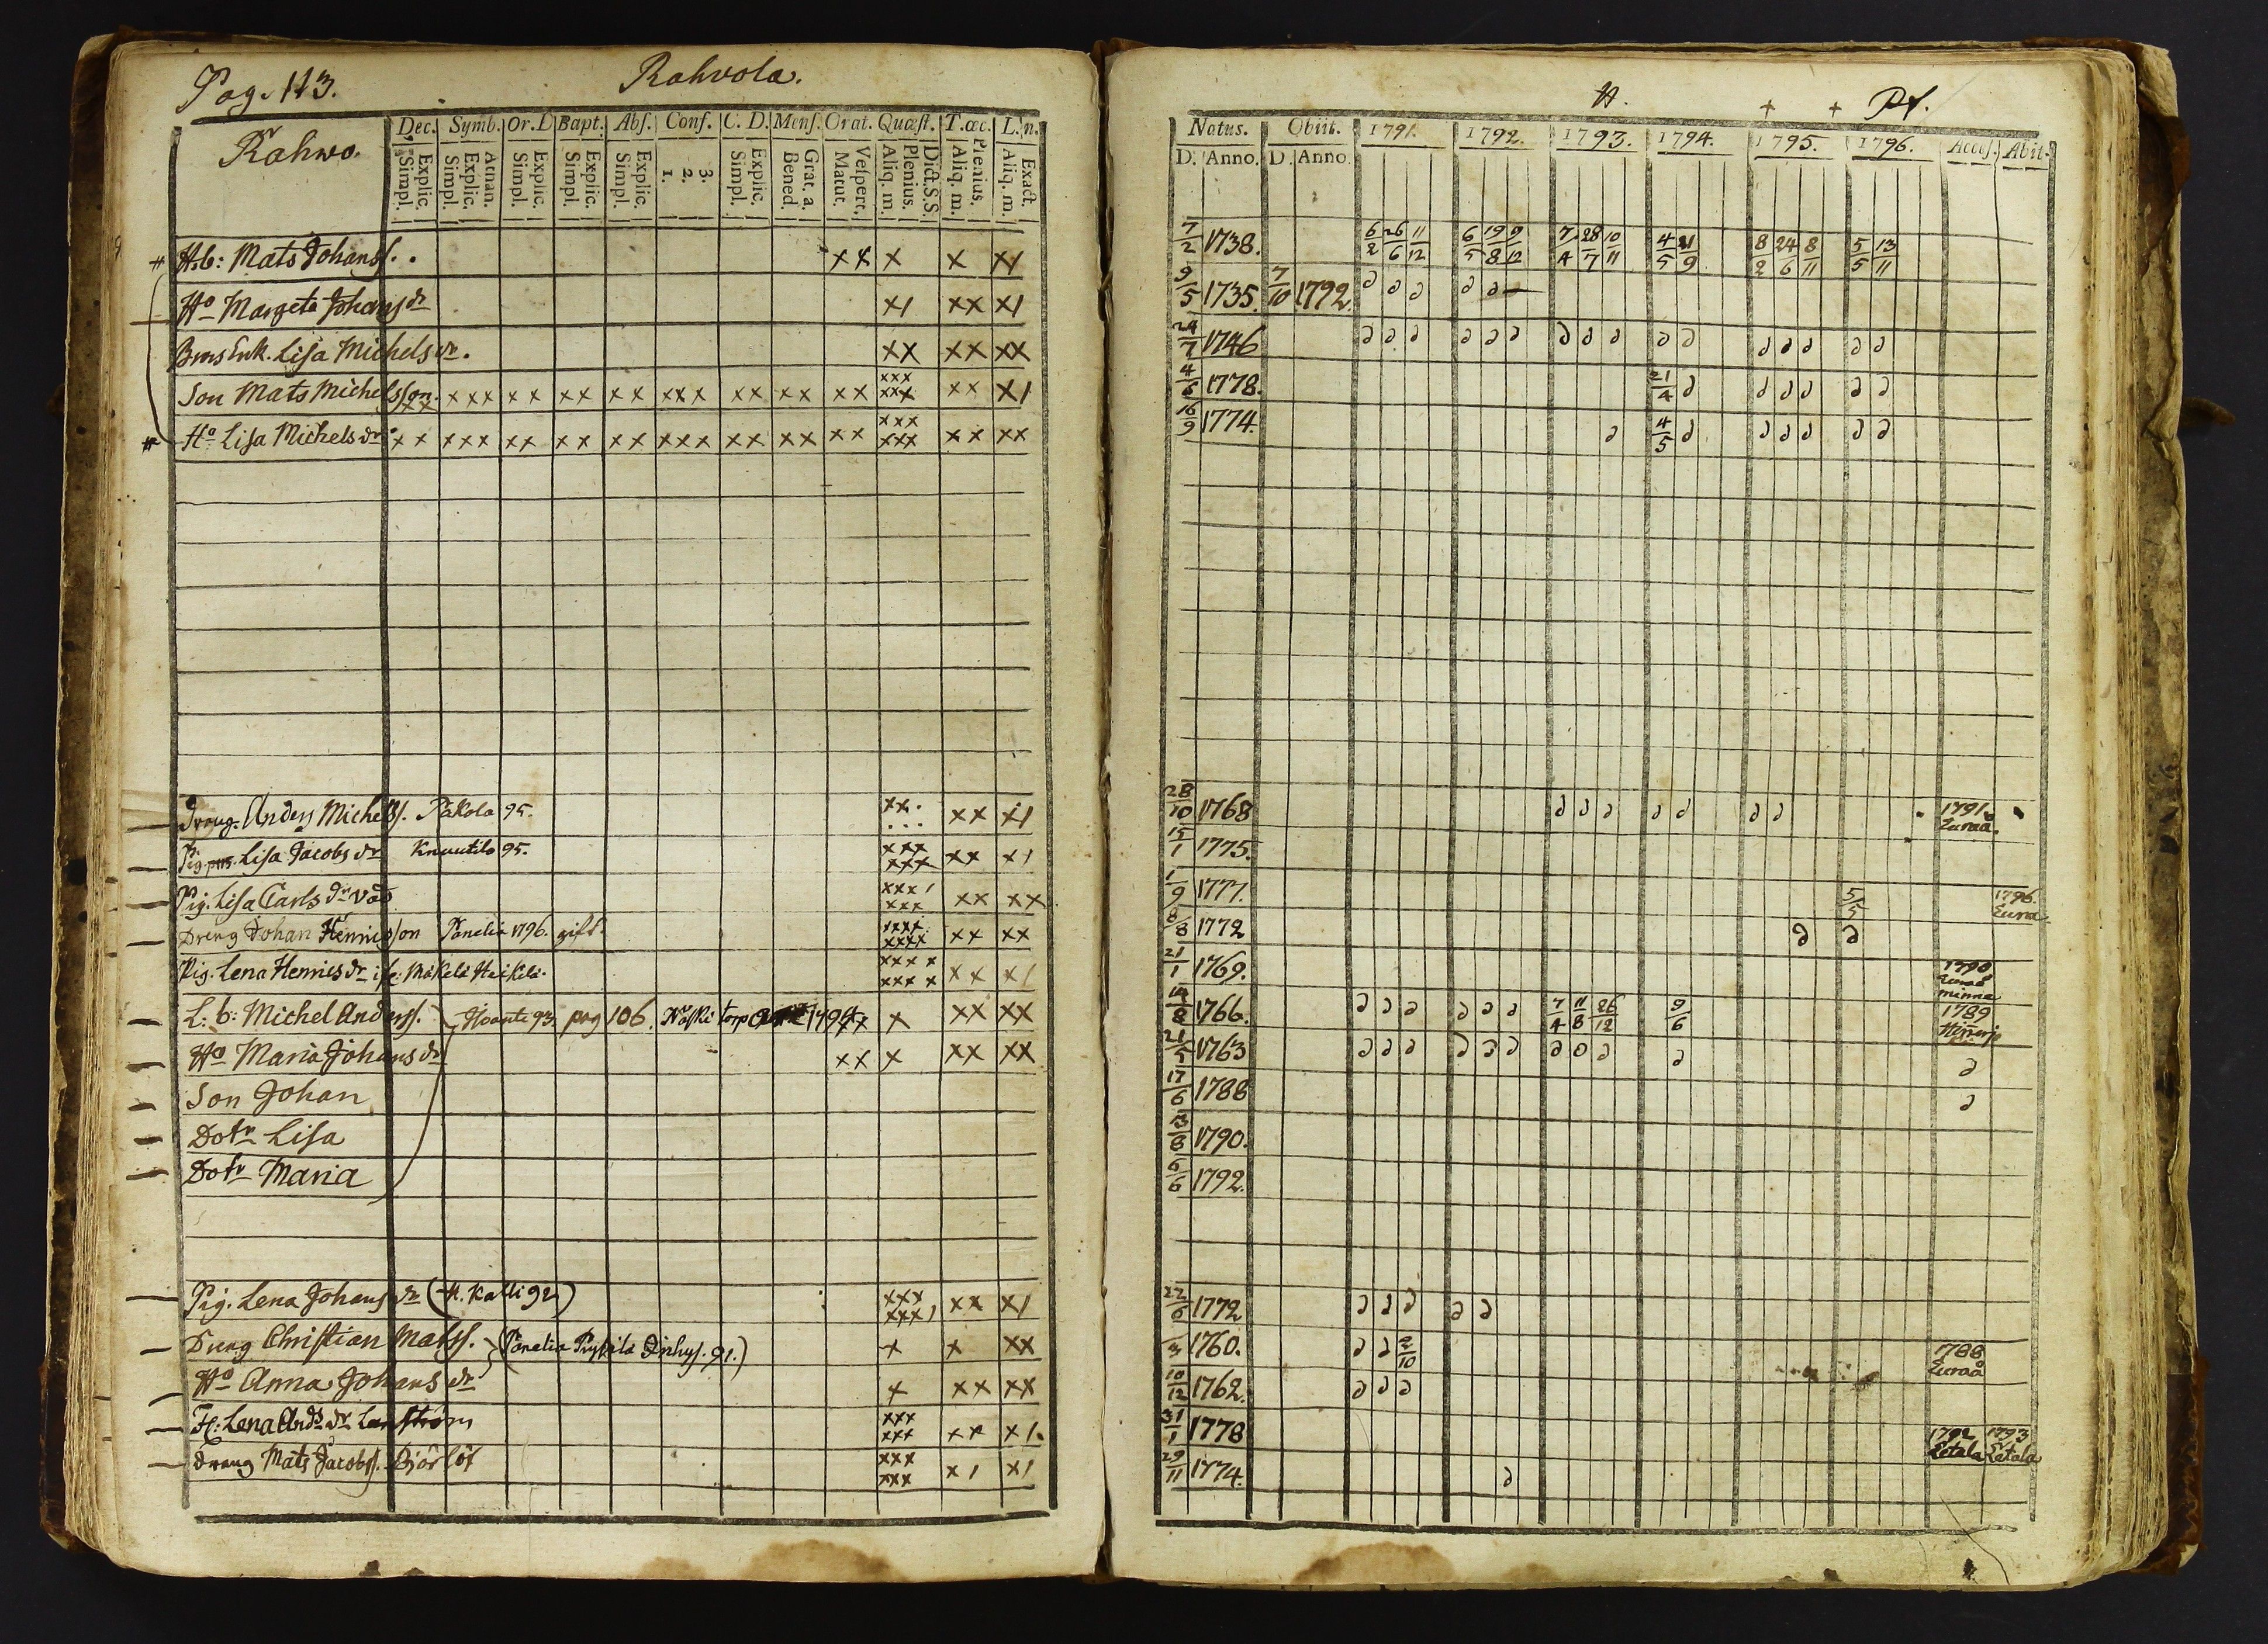 Pag. 113. Rahvola.
Rahwo.
Dec. Symb. Or. D Bapt. Abſ. Conf. C. D. Menſ. Orat. Quæſt. T. œc. L. n.
Explic. Simpl. Atnan. Explic. Simpl. Explic. Simpl. Explic. Simpl. Explic. Simpl. 3. 2. 1. Explic. Simpl. Grat. a. Bened. Veſpert. Matut. Dict. S. S. Plenius. Aliq. m. Plenius. Aliq. m. Exact. Aliq. m.
H.b: Mats Johanſſ. xx x x x/
Ho Margeta Johansdr x/ xx x/
Lisa Michelsdr. xx xx xx
Son Mats Michelsson. xx xxx xx xx xx xxx xx xx xx xxx xxx xx x/
Ho Liſa Michelsdr xx xxx xx xx xx xxx xx xx xx xxx xxx xx xx
Anders Michelſſ. Pakola 95. xx xx x/
Lisa Jacobsdr Knuutila 95. xxx xxx xx x/
Pig. Liſa Carlsdr xxx/ xxx xx xx
Dreng Johan Hennicsſon Panelia 1796. gift. xxxx xxxx xx xx
Pig. Lena Hennicsdr xxxx xxxx xx x/
L: b: Michel Anderſſ. 93. pag 106. torp 1794 xx x xx xx
Ho Maria Johansdr xx x xx xx
Son Johan
Dotr Liſa
Dotr Maria
Pig. Lena Johansdr (H. Kalli 92) xxx xxx/ xx x/
Dreng Christian Matsſ. (Panelia Inhyſ. 91.) x x xx
Ho Anna Johansdr x xx xx
Lena Andsdr xxx xxx xx x/.
Dreng Mats Jacobſſ. Björlöf xxx xxx x/ x/
Natus. Obiit. 1791. 1792. 1793. 1794. 1795. 1796. Acceſ. Abit.
D. Anno. D. Anno.
7/2 1738. 6/2 26/6 11/12 6/5 19/8 9/12 7/4 28/7 10/11 4/5 21/9 8/2 24/6 8/11 5/5 13/11
9/5 1735. 7/10 1792. ∂ ∂ ∂ ∂ ∂ —
24/7 1746 ∂ ∂ ∂ ∂ ∂ ∂ ∂ ∂ ∂ ∂ ∂ ∂ ∂ ∂ ∂ ∂
4/6 1778. 21/4 ∂ ∂ ∂ ∂ ∂ ∂
16/9 1774. ∂ 4/5 ∂ ∂ ∂ ∂ ∂ ∂
28/10 1768 ∂ ∂ ∂ ∂ ∂ ∂ ∂ 1791. Euraå.
15/1 1775.
1/9 1777. 5/5 1796. Eura
8/8 1772 ∂ ∂
21/1 1769. 1790 Euraåminne
14/8 1766. ∂ ∂ ∂ ∂ ∂ ∂ 7/4 11/8 26/12 9/6 1789 Hinnerjo
21/5 1763 ∂ ∂ ∂ ∂ ∂ ∂ ∂ ∂ ∂ ∂ ∂
17/6 1788 ∂
13/8 1790.
6/6 1792.
22/6 1772 ∂ ∂ ∂ ∂ ∂
3 1760. ∂ ∂ 2/10 1788 Euraå
10/12 1762. ∂ ∂ ∂
31/1 1778 1792 Letala 1793 Letala
29/11 1774. ∂